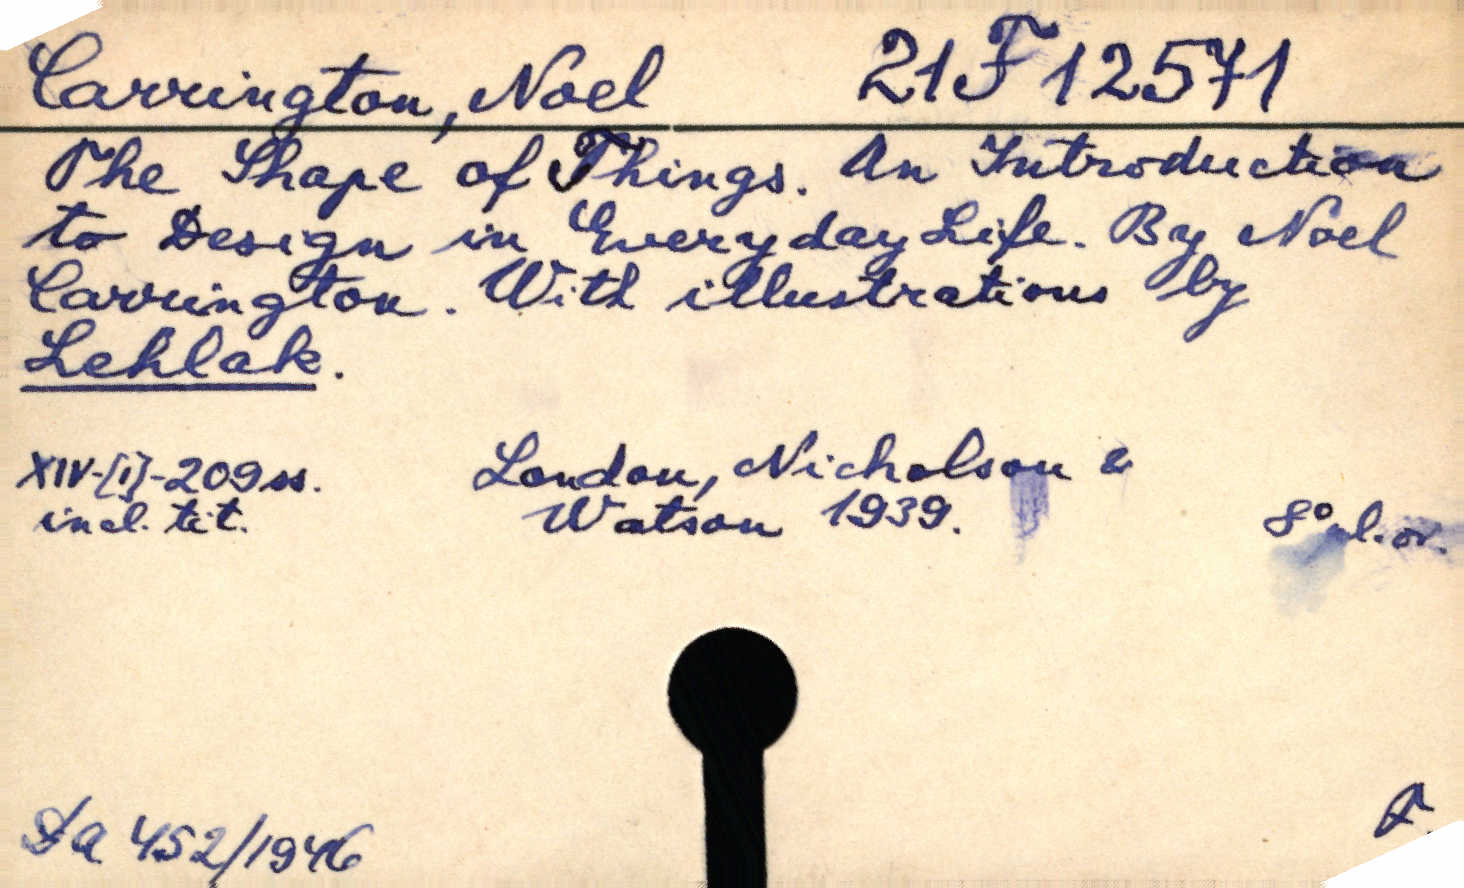 Carrington, Noel 21 F 12571
The Shape of Things. An Introduction
to Design in Everyday Life. By Noel
Carrington. With illustrations by
Lehlak.
XIV-[1]-209 ss. London, Nicholson &
incl. tit. Watson 1939. 8° al. or.
Da 452/1946